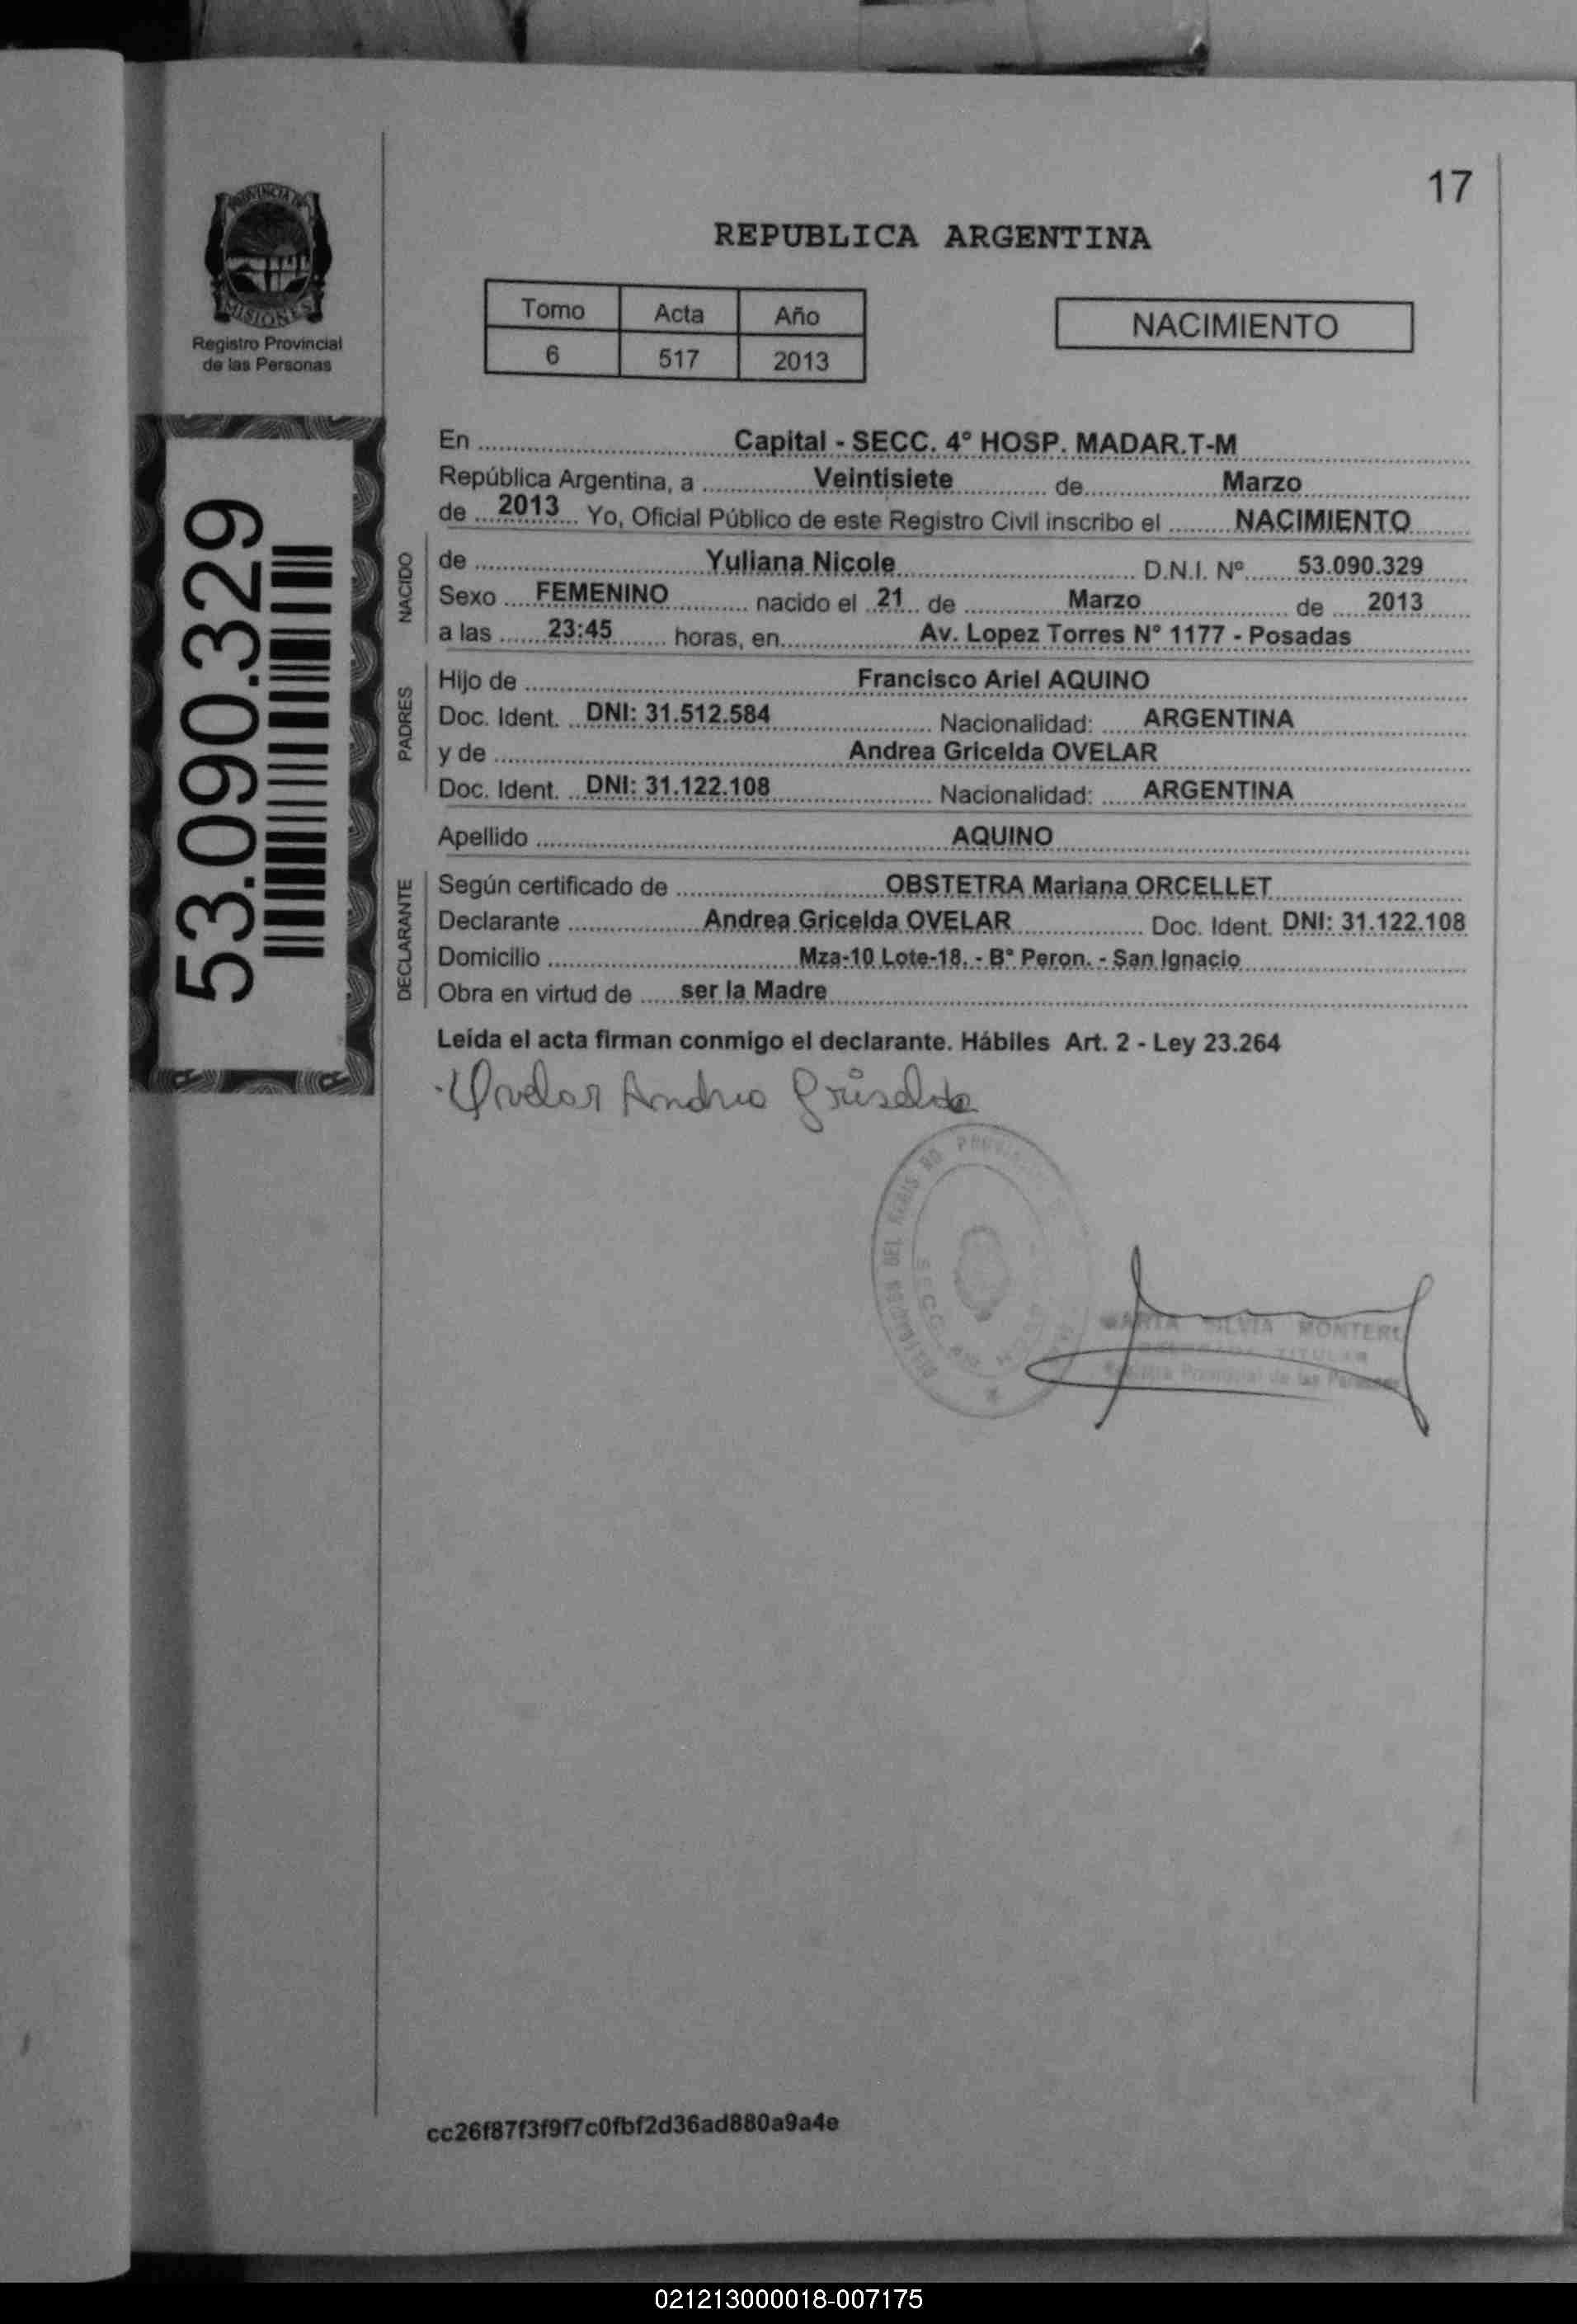 17
PROVINCIA DE
MISIONES
Registro Provincial
de las Personas
REPUBLICA ARGENTINA
Tomo Acta Año
6 517 2013
NACIMIENTO
53.090.329
En Capital - SECC. 4° HOSP. MADAR.T-M
República Argentina, a Veintisiete de Marzo
de 2013 Yo, Oficial Público de este Registro Civil inscribo el NACIMIENTO
NACIDO
de Yuliana Nicole D.N.I. Nº 53.090.329
Sexo FEMENINO nacido el 21 de Marzo de 2013
a las 23:45 horas, en Av. Lopez Torres N° 1177 - Posadas
PADRES
Hijo de Francisco Ariel AQUINO
Doc. Ident. DNI: 31.512.584 Nacionalidad: ARGENTINA
y de Andrea Gricelda OVELAR
Doc. Ident. DNI: 31.122.108 Nacionalidad: ARGENTINA
Apellido AQUINO
DECLARANTE
Según certificado de OBSTETRA Mariana ORCELLET
Declarante Andrea Gricelda OVELAR Doc. Ident. DNI: 31.122.108
Domicilio Mza-10 Lote-18. - B° Peron. - San Ignacio
Obra en virtud de ser la Madre
Leída el acta firman conmigo el declarante. Hábiles Art. 2 - Ley 23.264
Ovelar Andrea Griselda
MARIA SILVIA MONTERO
TITULAR
Provincial de las Personas
cc26f87f3f9f7c0fbf2d36ad880a9a4e
021213000018-007175